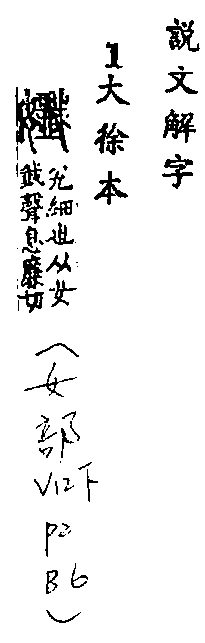 説文解字
1大徐本
兊細也从女
韱聲息廉切
（女部
V12下
P2
B6）